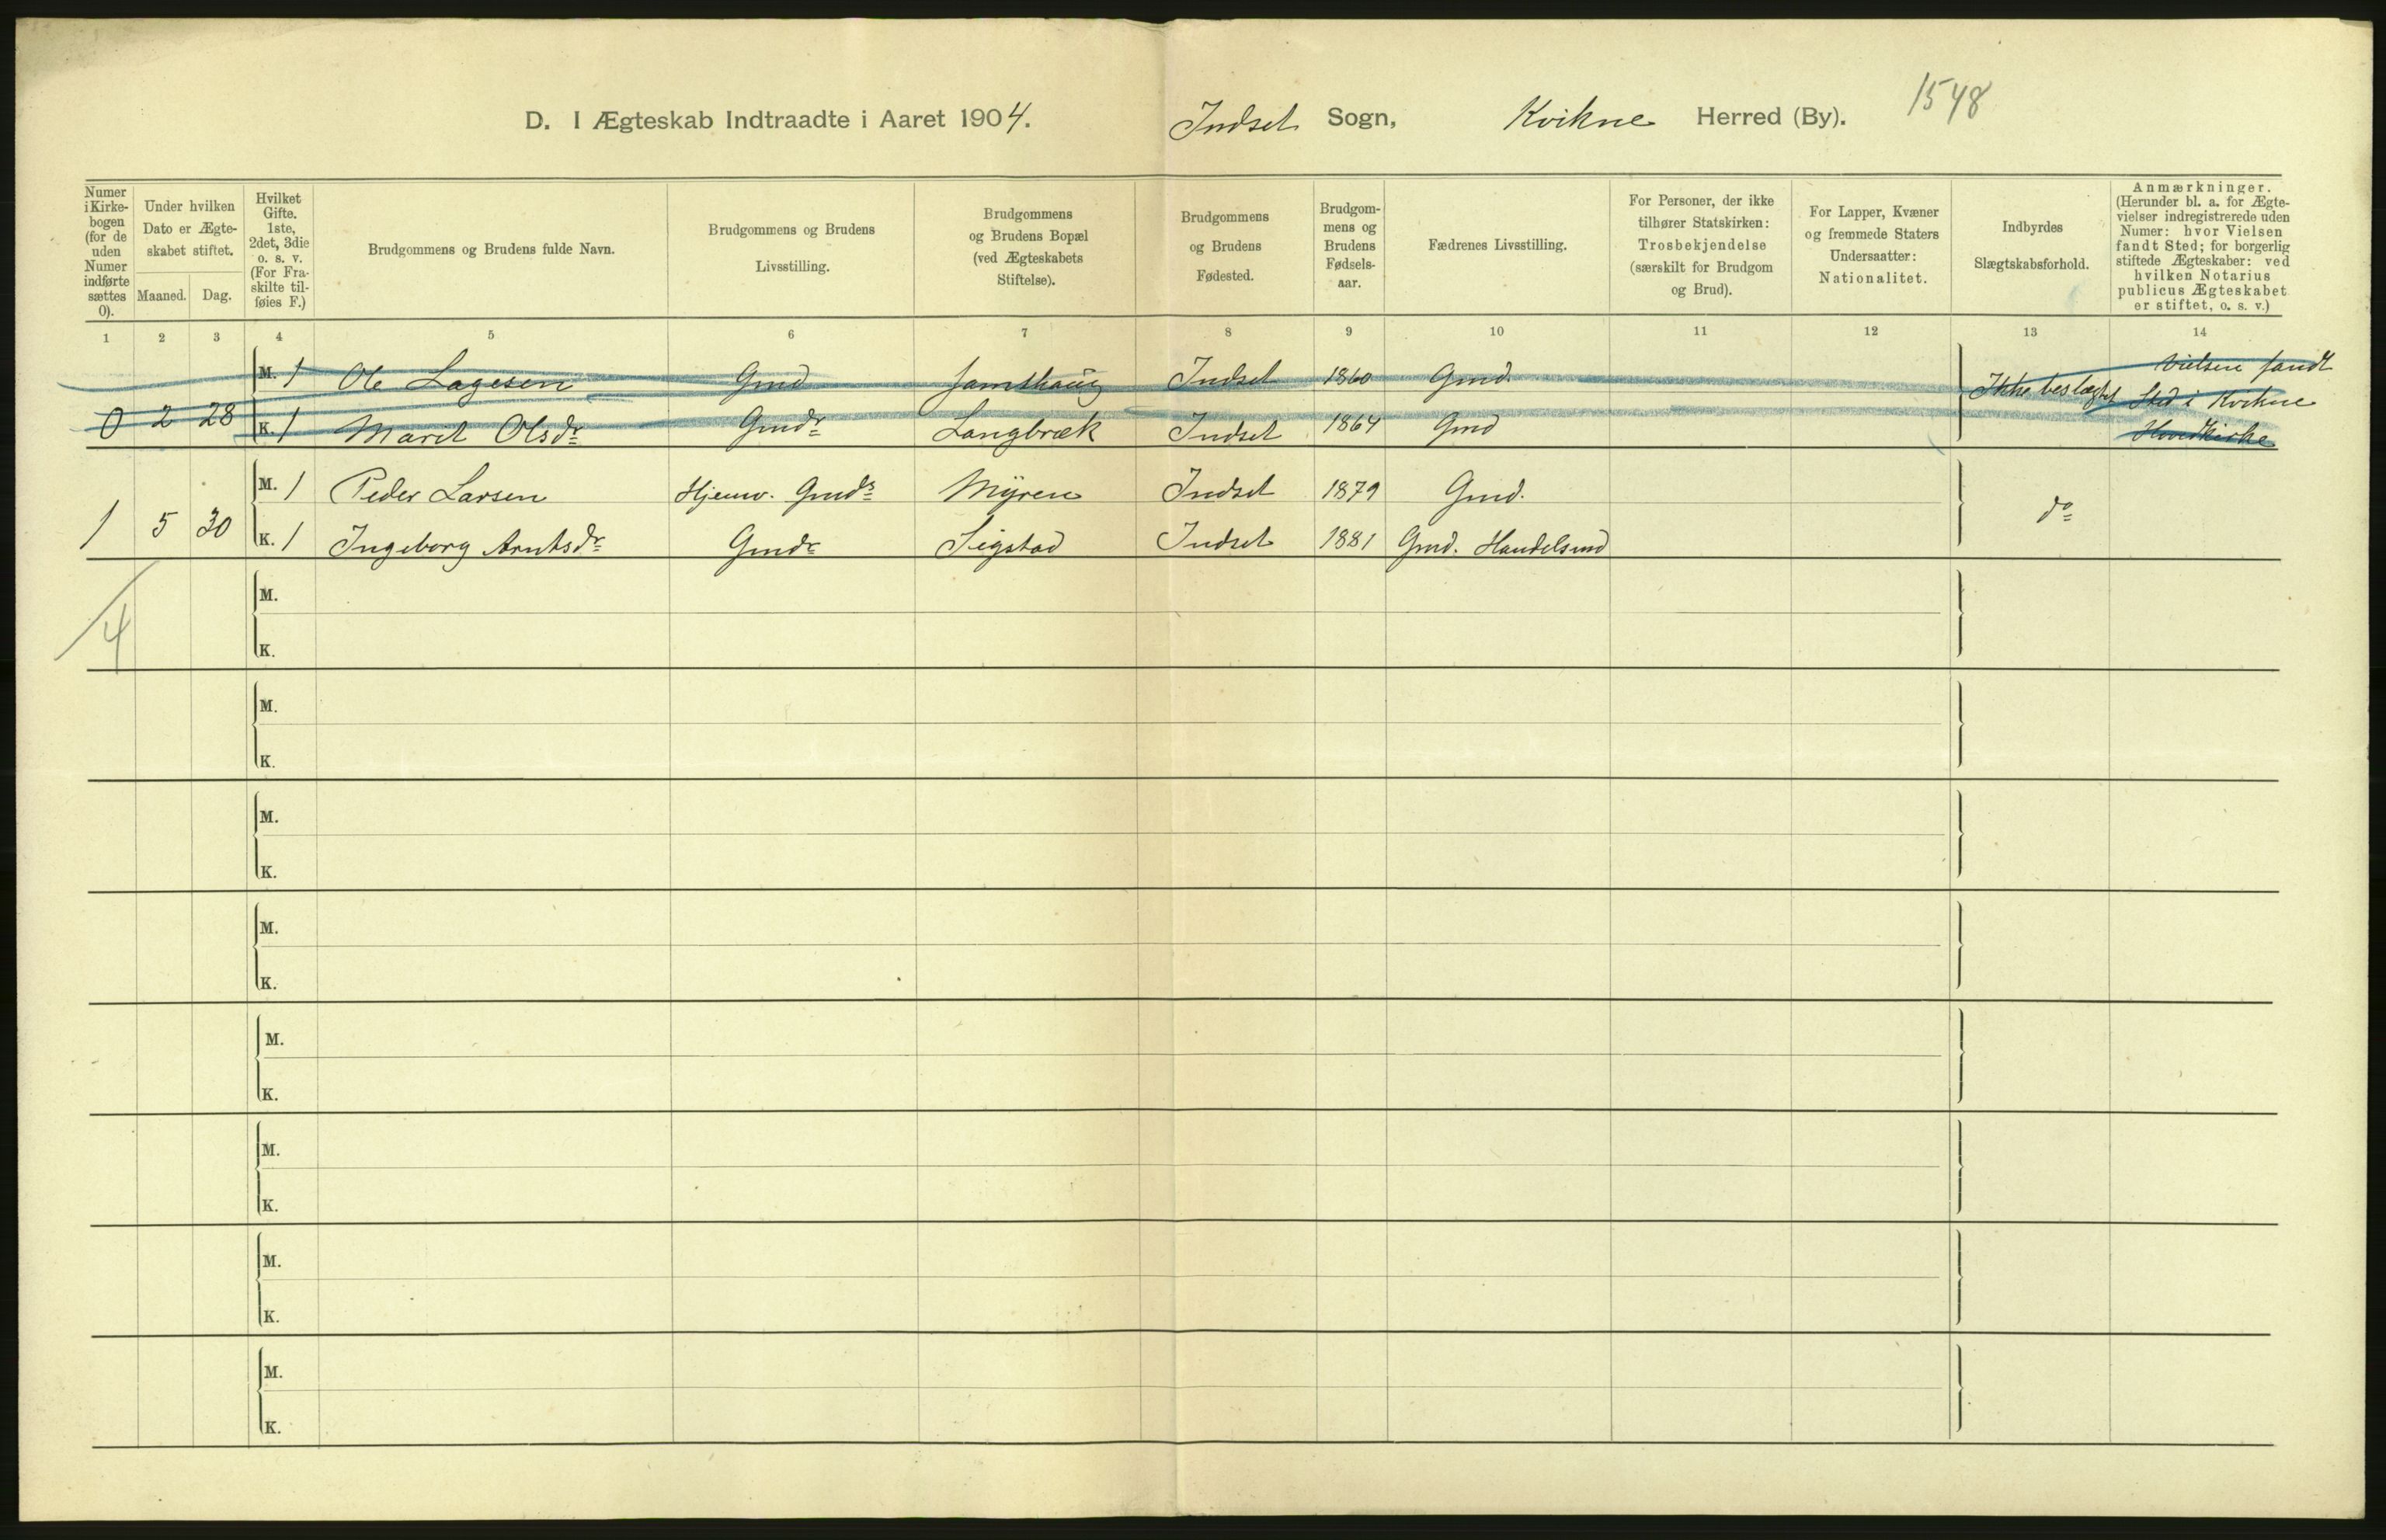 D. I Ægteskab Indtraadte i Aaret 1904. Indset Sogn, Kvikne Herred (By). 1548
Numer i Kirkebogen (for de uden Numer indførte sættes 0).
Under hvilken Dato er Ægteskabet stiftet.
Maaned. Dag.
Hvilket Gifte. 1ste, 2det, 3die o. s. v. (For Fraskilte tilføies F.)
Brudgommens og Brudens fulde Navn.
Brudgommens og Brudens Livsstilling.
Brudgommens og Brudens Bopæl (ved Ægteskabets Stiftelse).
Brudgommens og Brudens Fødested.
Brudgommens og Brudens Fødselsaar.
Fædrenes Livsstilling.
For Personer, der ikke tilhører Statskirken: Trosbekjendelse (særskilt for Brudgom og Brud).
For Lapper, Kvæner og fremmede Staters Undersaatter: Nationalitet.
Indbyrdes Slægtskabsforhold.
Anmærkninger. (Herunder bl. a. for Ægtevielser indregistrerede uden Numer: hvor Vielsen fandt Sted; for borgerlig stiftede Ægteskaber: ved hvilken Notarius publicus Ægteskabet er stiftet, o. s. v.)
1 2 3 4 5 6 7 8 9 10 11 12 13 14
M. 1 Ole Lagesen Gmd Indset 1860 Gmd. Ikke beslægtet Vielsen fandt
0 2 28 K. 1 Marit Olsdr Gmdr Langbræk Indset 1864 Gmd Sted i Kvikne
Hovedkirke
M. 1 Peder Larsen Hjemv. Gmds Myren Indset 1879 Gmd.
1 5 30 K. 1 Ingeborg Arntsdr Gmdr Sigstad Indset 1881 Gmd. Handelsmd do
M.
4
K.
M.
K.
M.
K.
M.
K.
M.
K.
M.
K.
M.
K.
M.
K.